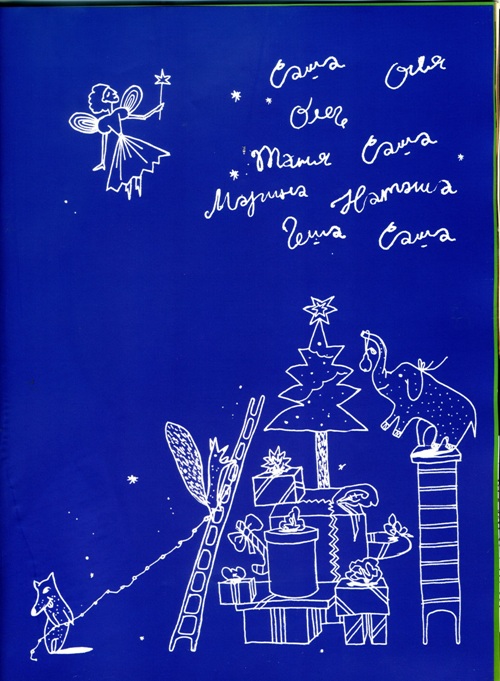 Саша Оля
Олег
Таня Саша
Марина Наташа
Геша Саша